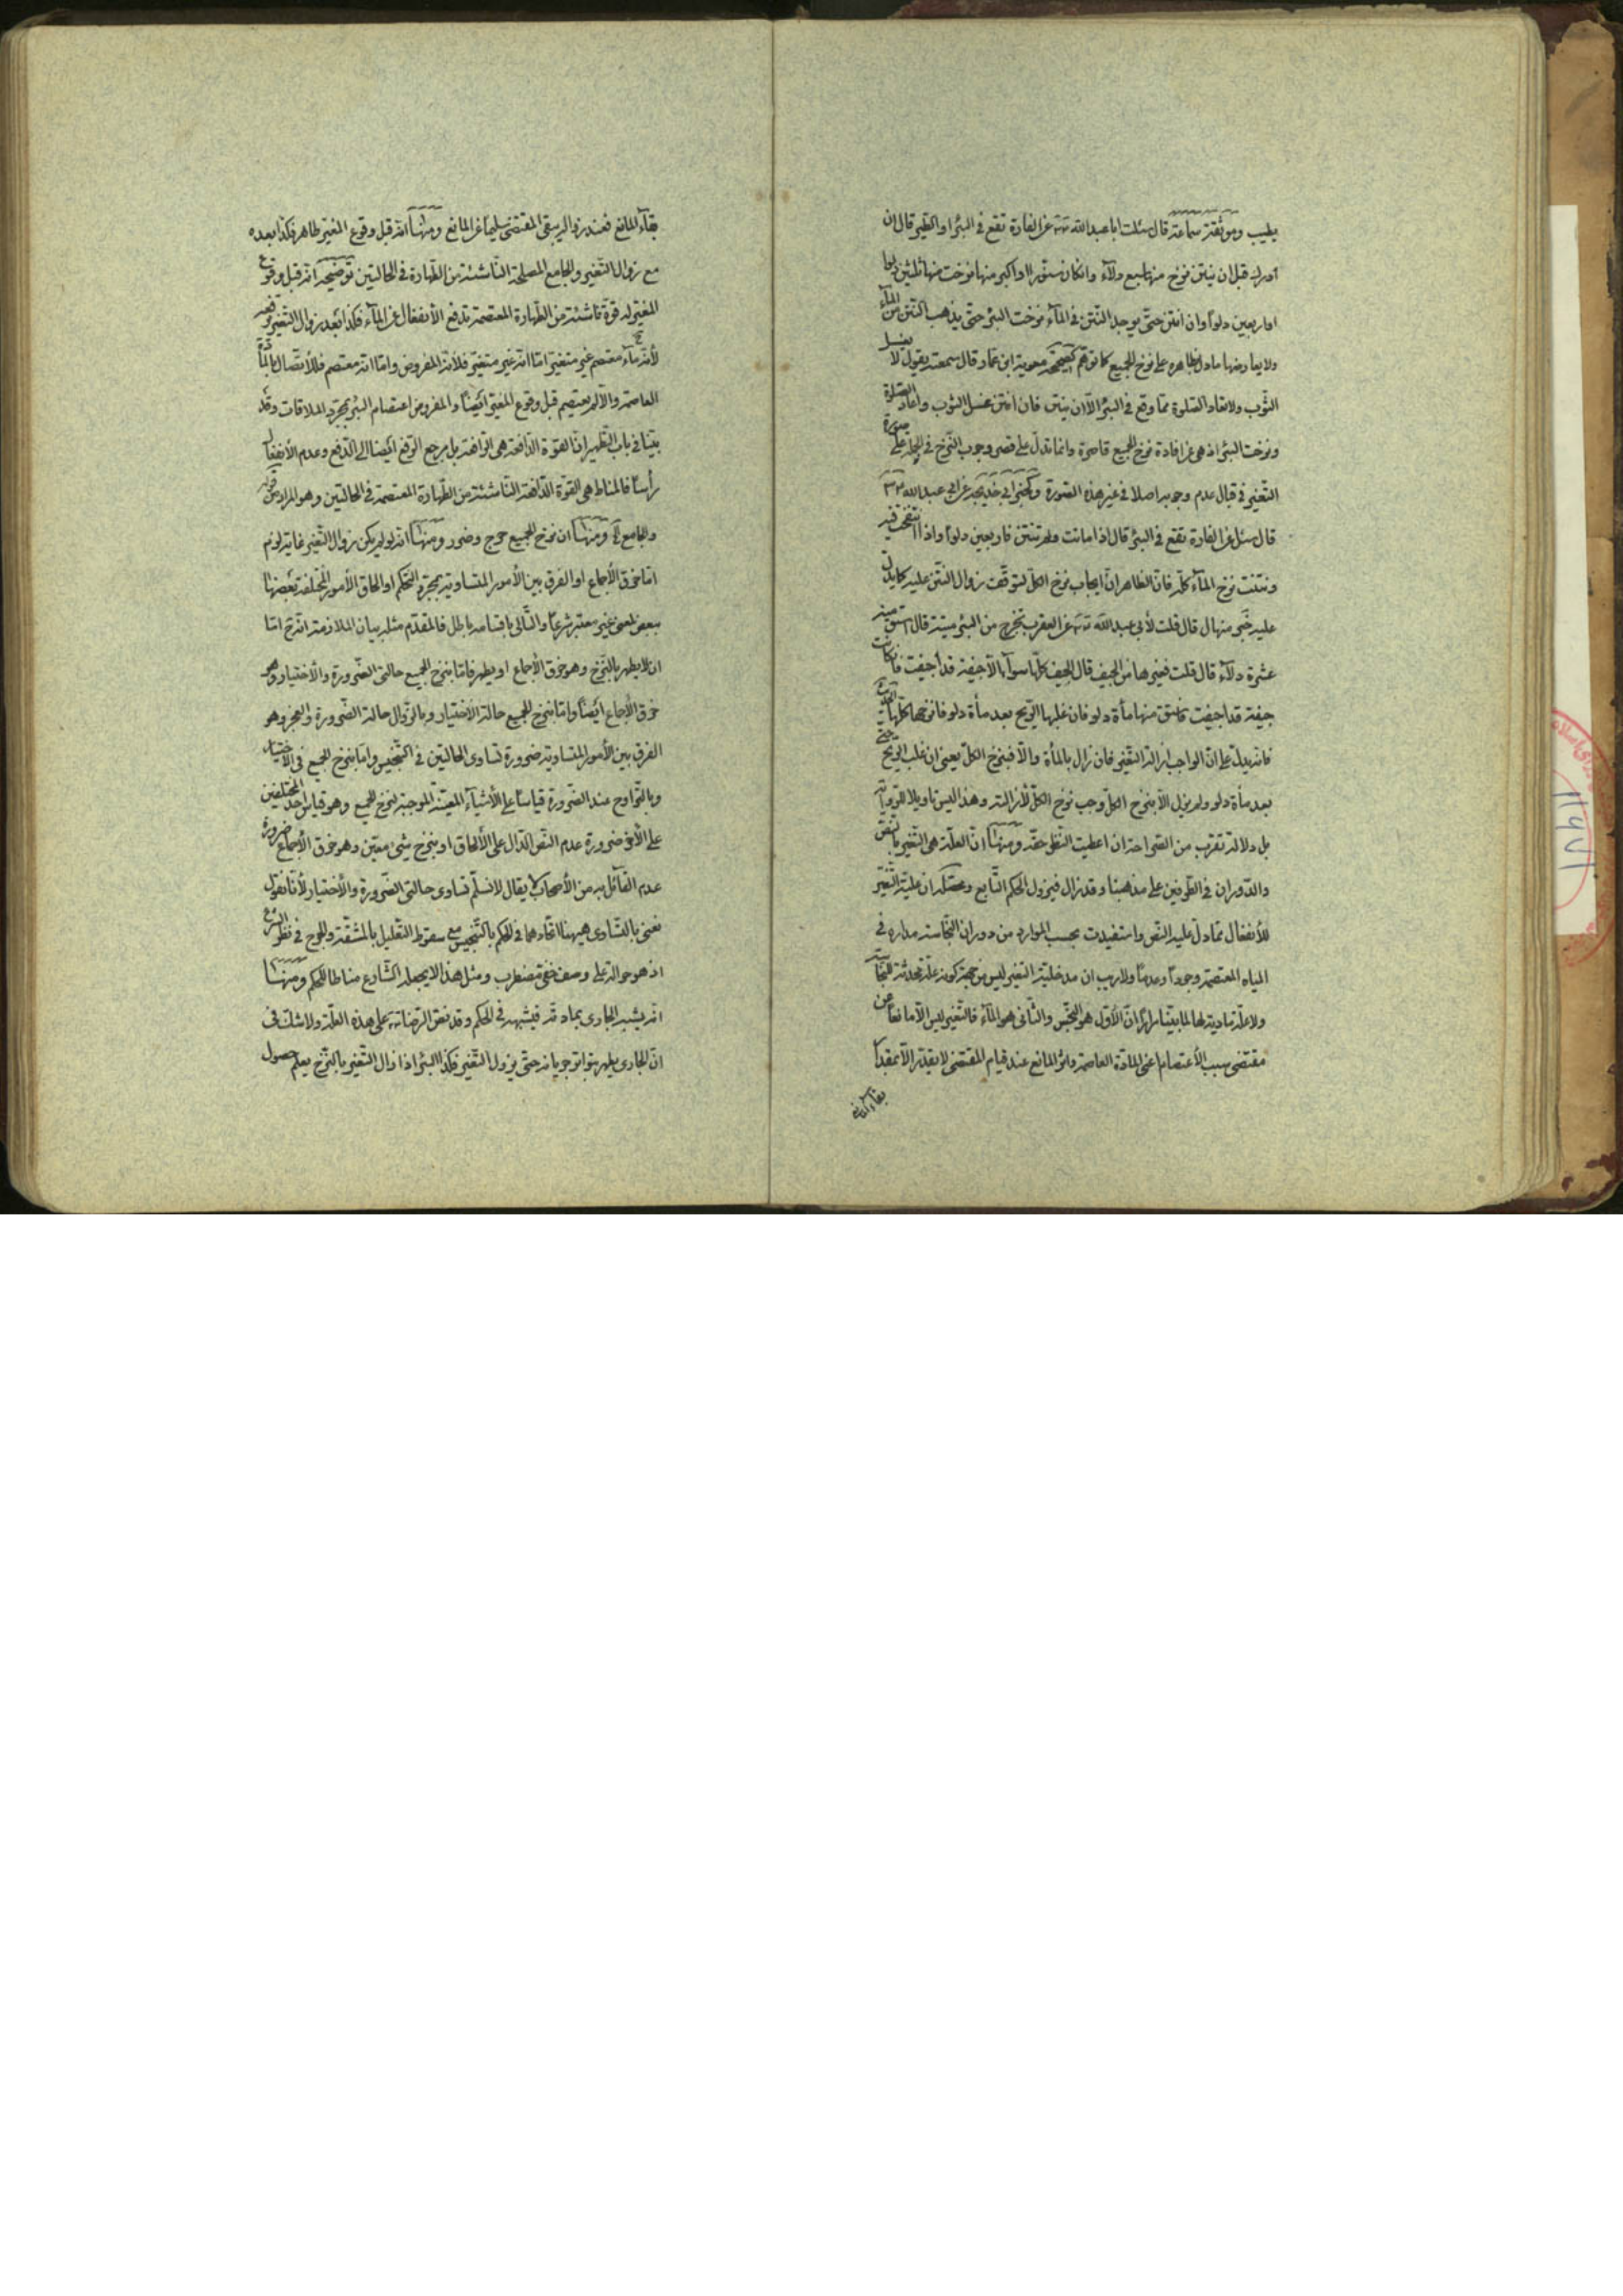 يطيب وموثقة سماعة قال سئلت ابا عبد الله عن الفارة تقع في البئر او الطير قال ان
ادركه قبل ان ينتن نزح منها سبع دلاء وان كان سنورا او اكبر منها نزحت منها ثلثين دلوا
او اربعين دلوا وان انتن حتى يوجد النتن في الماء نزحت البئر حتى يذهب النتن من الماء
ولا يعارضها ما دل بظاهره على نزح الجميع كما توهم كصحيحة معوية ابن عمار قال سمعته يقول لا يغسل
الثوب ولا تعاد الصلوة مما وقع في البئر الا ان ينتن فان انتن غسل الثوب واعاد الصلوة
ونزحت البئر اذ هي عن افادة نزح الجميع قاصرة وانما تدل على قصر وجوب النزح في الجملة على صورة
التغير في قبال عدم وجوبه اصلا في غير هذه الصورة وكخبر ابي خديجة عن ابي عبد الله
قال سئل عن الفارة تقع في البئر قال اذا ماتت ولم تنتن فاربعين دلوا واذا انتفخت فيه
ونتنت نزح الماء كله فان الظاهر ان ايجاب نزح الكل لتوقف زوال النتن عليه كما يدل
عليه خبر منهال قال قلت لأبي عبد الله عن العقرب تخرج من البئر ميتة قال استق منه
عشرة دلاء قال قلت فغيرها من الجيف قال الجيف كلها سواء الا جيفة قد اجيفت فان كانت
جيفة قد اجيفت فاستق منها مأة دلو فان غلبها الريح بعد مأة دلو فانزحها كلها
فانه يدل على ان الواجب ازالة التغير فان زال بالمأة والا فبنزح الكل يعني ان غلب الريح حتى
بعد مأة دلو ولم يزل الا بنزح الكل وجب نزح الكل لأزالته وهذا ليس تاويلا للرواية
بل دلالة تقرب من الصراحة ان اعطيت النظر حقه ومنها ان العلة هي التغير بالنص
والدوران في الطرفين على مذهبنا وقد زال فيزول الحكم التابع ان علية التغير
للأنفعال مما دل عليه النص واستفيدت بحسب الموارد من دوران النجاسة مداره في
المياه المعتصمة وجودا وعدما ولا ريب ان مدخلية التغير ليس من جهة كونه علة محدثة للنجاسة
ولا علة مادية لها لما بينا مرارا ان الأول هو النجس والثاني هو الماء فالتغير ليس الا مانعا عن
مقتضى سبب الأعتصام اعني المادة العاصمة واثر المانع عند قيام المقتضي لا يقدر الا بمقدار
بقاء المانع
بقاء المانع فعند زواله يبقى المقتضي سليما عن المانع ومنها انه قبل وقوع المغير طاهر فكذا بعده
مع زوال التغير والجامع المصلحة الناشئة من الطهارة في الحالتين توضيحه انه قبل وقوع
المغير له قوة ناشئة من الطهارة المعتصمة تدفع الأنفعال عن الماء فكذا بعد زوال التغير
لأنه ماء معتصم غير متغير اما انه غير متغير فلأنه المفروض واما انه معتصم فللأتصال بالمادة
العاصمة والا لم يعتصم قبل وقوع المغير ايضا والمفروض اعتصام البئر بمجرد الملاقات وقد
بينا في باب التطهير ان القوة الدافعة هي الرافعة بل مرجع الرفع ايضا الى الدفع وعدم الأنفعال
رأسا فالمناط هي القوة الدافعة الناشئة من الطهارة المعتصمة في الحالتين وهو المراد من
والجامع ومنها ان نزح الجميع حرج وضرر ومنها انه لو لم يكن زوال التغير غاية لزم
اما خرق الأجماع او الفرق بين الأمور المتساوية بمجرد التحكم او الحاق الأمور المختلفة بعضها
ببعض لمعنى غير معتبر شرعا والتالي باقسامه باطل فالمقدم مثله بيان الملازمة انه ح اما
ان لا يطهر بالنزح وهو خرق الأجماع او يطهر فاما بنزح الجميع حالتي الضرورة والأختيار وهو
خرق الأجماع ايضا واما بنزح الجميع حالة الأختيار وبالزوال حالة الضرورة والعجز وهو
الفرق بين الأمور المتساوية ضرورة تساوي الحالتين في التنجيس واما بنزح الجميع في الأختيار
وبالتراوح عند الضرورة قياسا على الأشياء المعينة الموجبة لنزح الجميع وهو قياس احد المختلفين
على الأخر ضرورة عدم النص الدال على الألحاق او بنزح شئ معين وهو خرق الأجماع ضرورة
عدم القائل به من الأصحاب لا يقال لا نسلم تساوي حالتي الضرورة والأختيار لأنا نقول
نعني بالتساوي هيهنا اتحادهما في الحكم بالتنجيس مع سقوط التعليل بالمشقة والحرج في نظر الشرع
اذ هو حوالة على وصف خفي مضطرب ومثل هذا لا يجعله الشارع مناطا للحكم ومنها
انه يشبه الجاري بمادته فيشبهه في الحكم وقد نص الرضا على هذه العلة ولا شك في
ان الجاري يطهر بتواتر جريانه حتى يزول التغير فكذا البئر اذا زال التغير بالنزح يعلم حصول